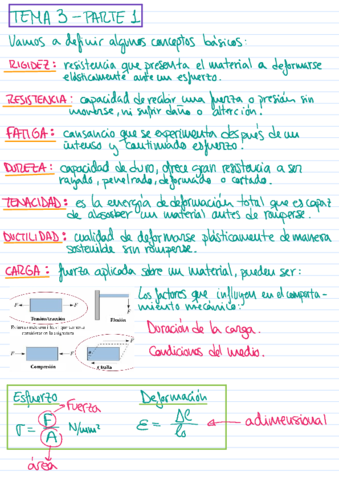 TEMA 3 - PARTE 1
Vamos a definir algunos conceptos básicos:
RIGIDEZ: resistencia que presenta el material a deformarse
elásticamente ante un esfuerzo.
RESISTENCIA: capacidad de recibir una fuerza o presión sin
ni sufrir daño o
FATIGA: cansancio que se experimenta después de un
intenso y continuado esfuerzo.
DUREZA: capacidad de duro, ofrece gran resistencia a ser
rayado, penetrado, deformado o cortado.
TENACIDAD: es la energía de deformación total que es capaz
de absorber un material antes de romperse.
DUCTILIDAD: cualidad de deformarse plásticamente de manera
sostenible sin romperse.
CARGA: fuerza aplicada sobre un material, pueden ser:
F F
Tensión/tracción
Flexión
F F
Compresión
Cizalla
Los factores que influyen en el comporta-
miento mecánico:
Duración de la carga.
Condiciones del medio.
Esfuerzo
Fuerza
σ = F/A N/mm²
área
Deformación
ε = Δl/l₀ adimensional